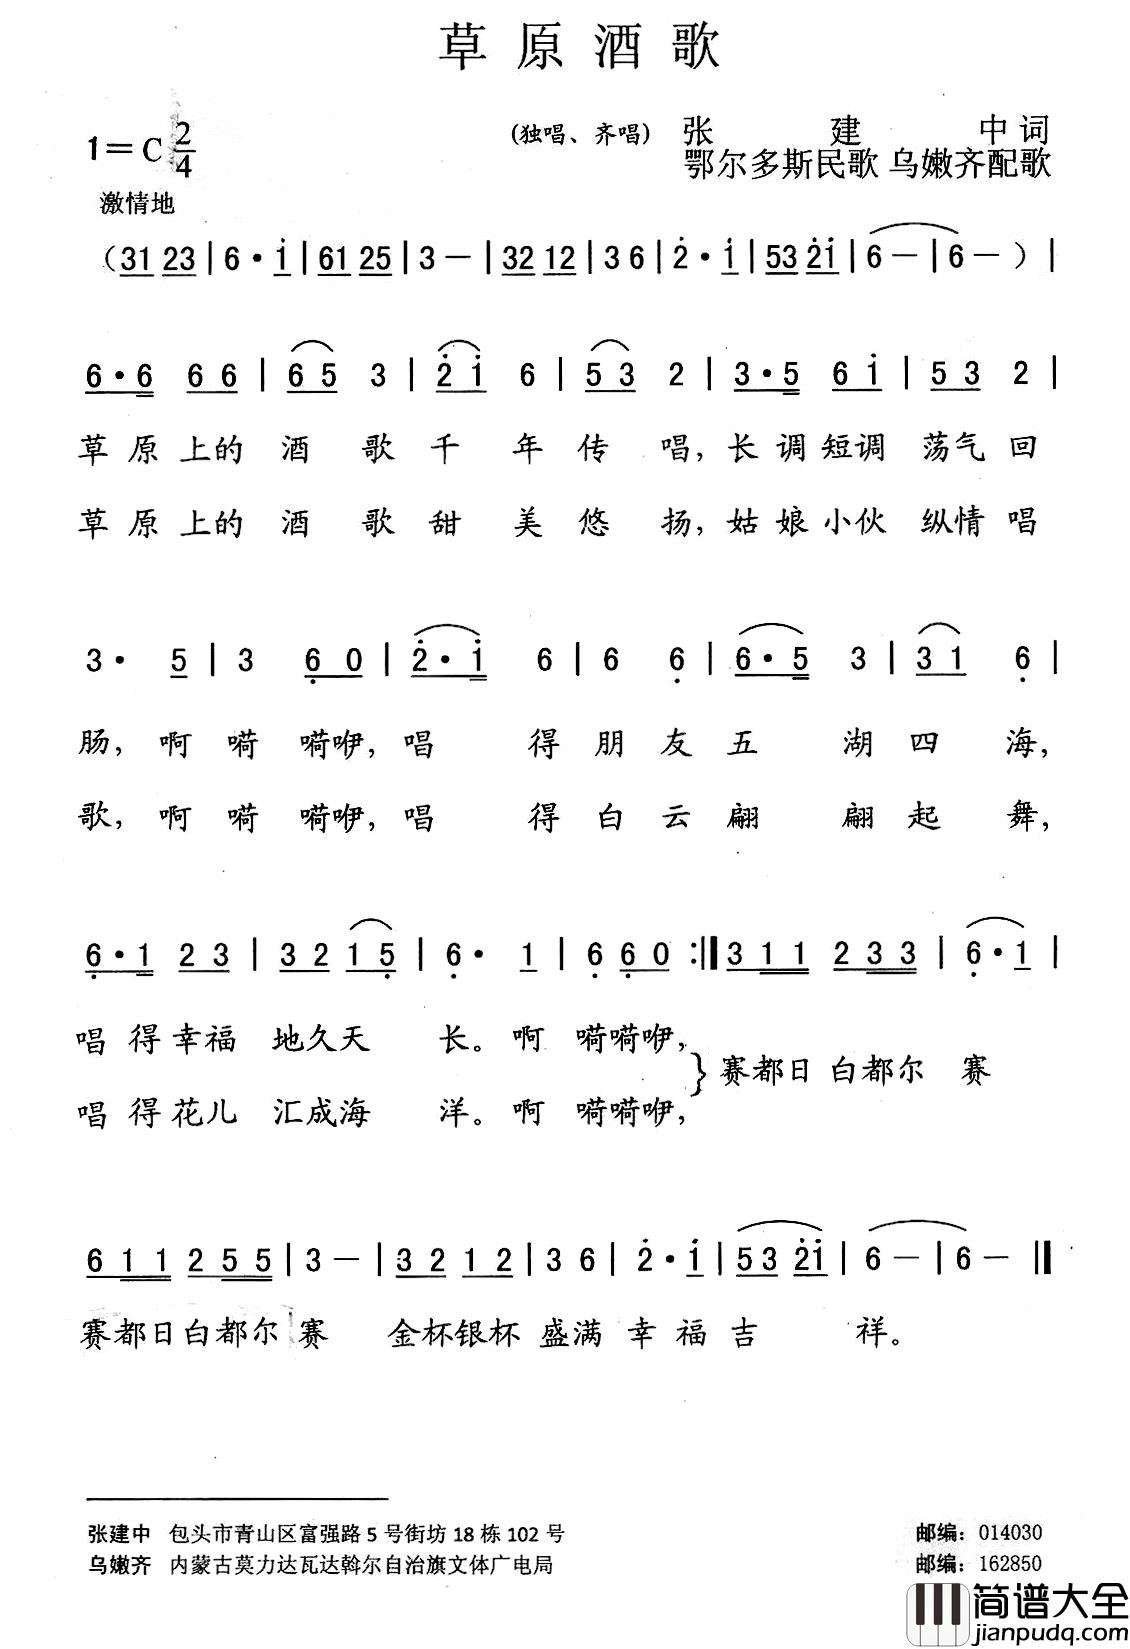 草原酒歌
1=C 2/4
(独唱、齐唱) 张建中词
鄂尔多斯民歌 乌嫩齐配歌
激情地
（31 23|6·i̇|61 25|3—|32 12|36|2̇·i̇|53 2̇i̇|6—|6—）|
6·6 66|65 3|2̇i̇ 6|53 2|3·5 6i̇|53 2|
草原上的酒歌千年传唱，长调短调荡气回
草原上的酒歌甜美悠扬，姑娘小伙纵情唱
3· 5|3 6̣0|2̇·i̇ 6|6 6̣|6·5 3|31 6̣|
肠，啊嗬嗬咿，唱得朋友五湖四海，
歌，啊嗬嗬咿，唱得白云翩翩起舞，
6̣·1 23|32 15̣|6̣· 1|6̣ 6̣0:‖311 233|6̣·1|
唱得幸福地久天长。啊嗬嗬咿，
}赛都日白都尔赛
唱得花儿汇成海洋。啊嗬嗬咿，
611 255|3—|32 12|36|2̇·i̇|53 2̇i̇|6—|6—‖
赛都日白都尔赛 金杯银杯盛满幸福吉祥。
张建中 包头市青山区富强路5号街坊18栋102号 邮编：014030
乌嫩齐 内蒙古莫力达瓦达斡尔自治旗文体广电局 邮编：162850
简谱大全
jianpudq.com